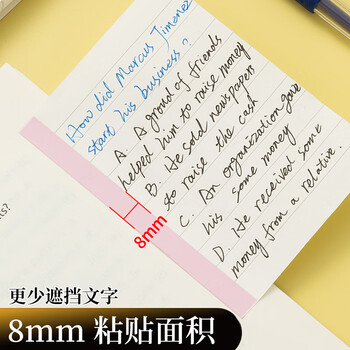 How did Marcus Jimenez
start his business?
A. A groud of friends
helped him to raise money
B. He sold newspapers
to raise the cash
C. An organization gave
his some money
D. He received some
money from a relative.
8mm
更少遮挡文字
8mm 粘贴面积